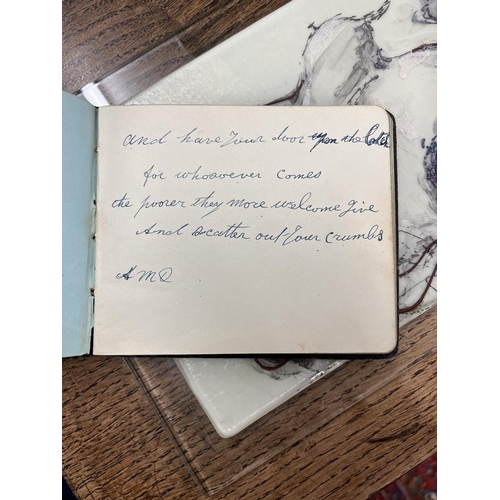 and have Your door upon the latch
for whosoever comes
the poorer they more welcome give
And scatter out Your crumbs
A M Q